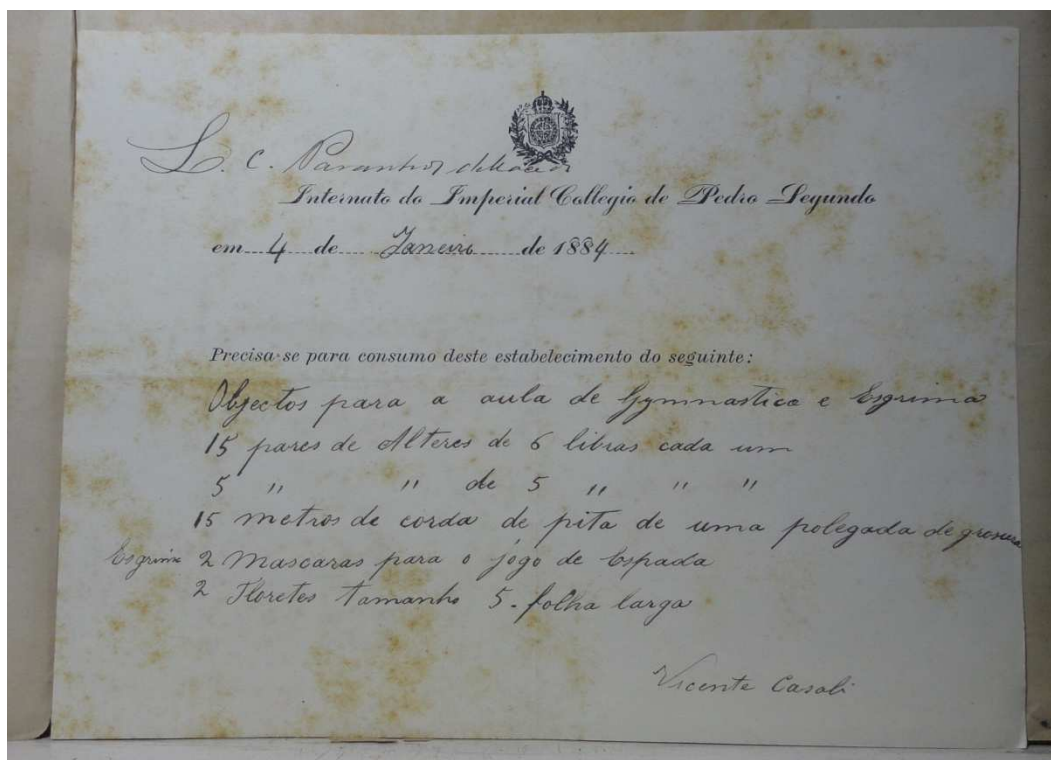 L. C. Paranhos
Internato do Imperial Collegio de Pedro Segundo
em 4 de Janeiro de 1884
Precisa-se para consumo deste estabelecimento do seguinte:
Objectos para a aula de Gymnastica e Esgrima
15 pares de Alteres de 6 libras cada um
5 " " de 5 " " "
15 metros de corda de pita de uma polegada de grossura
Esgrima 2 Mascaras para o jogo de Espada
2 Floretes tamanho 5. folha larga
Vicente Casali